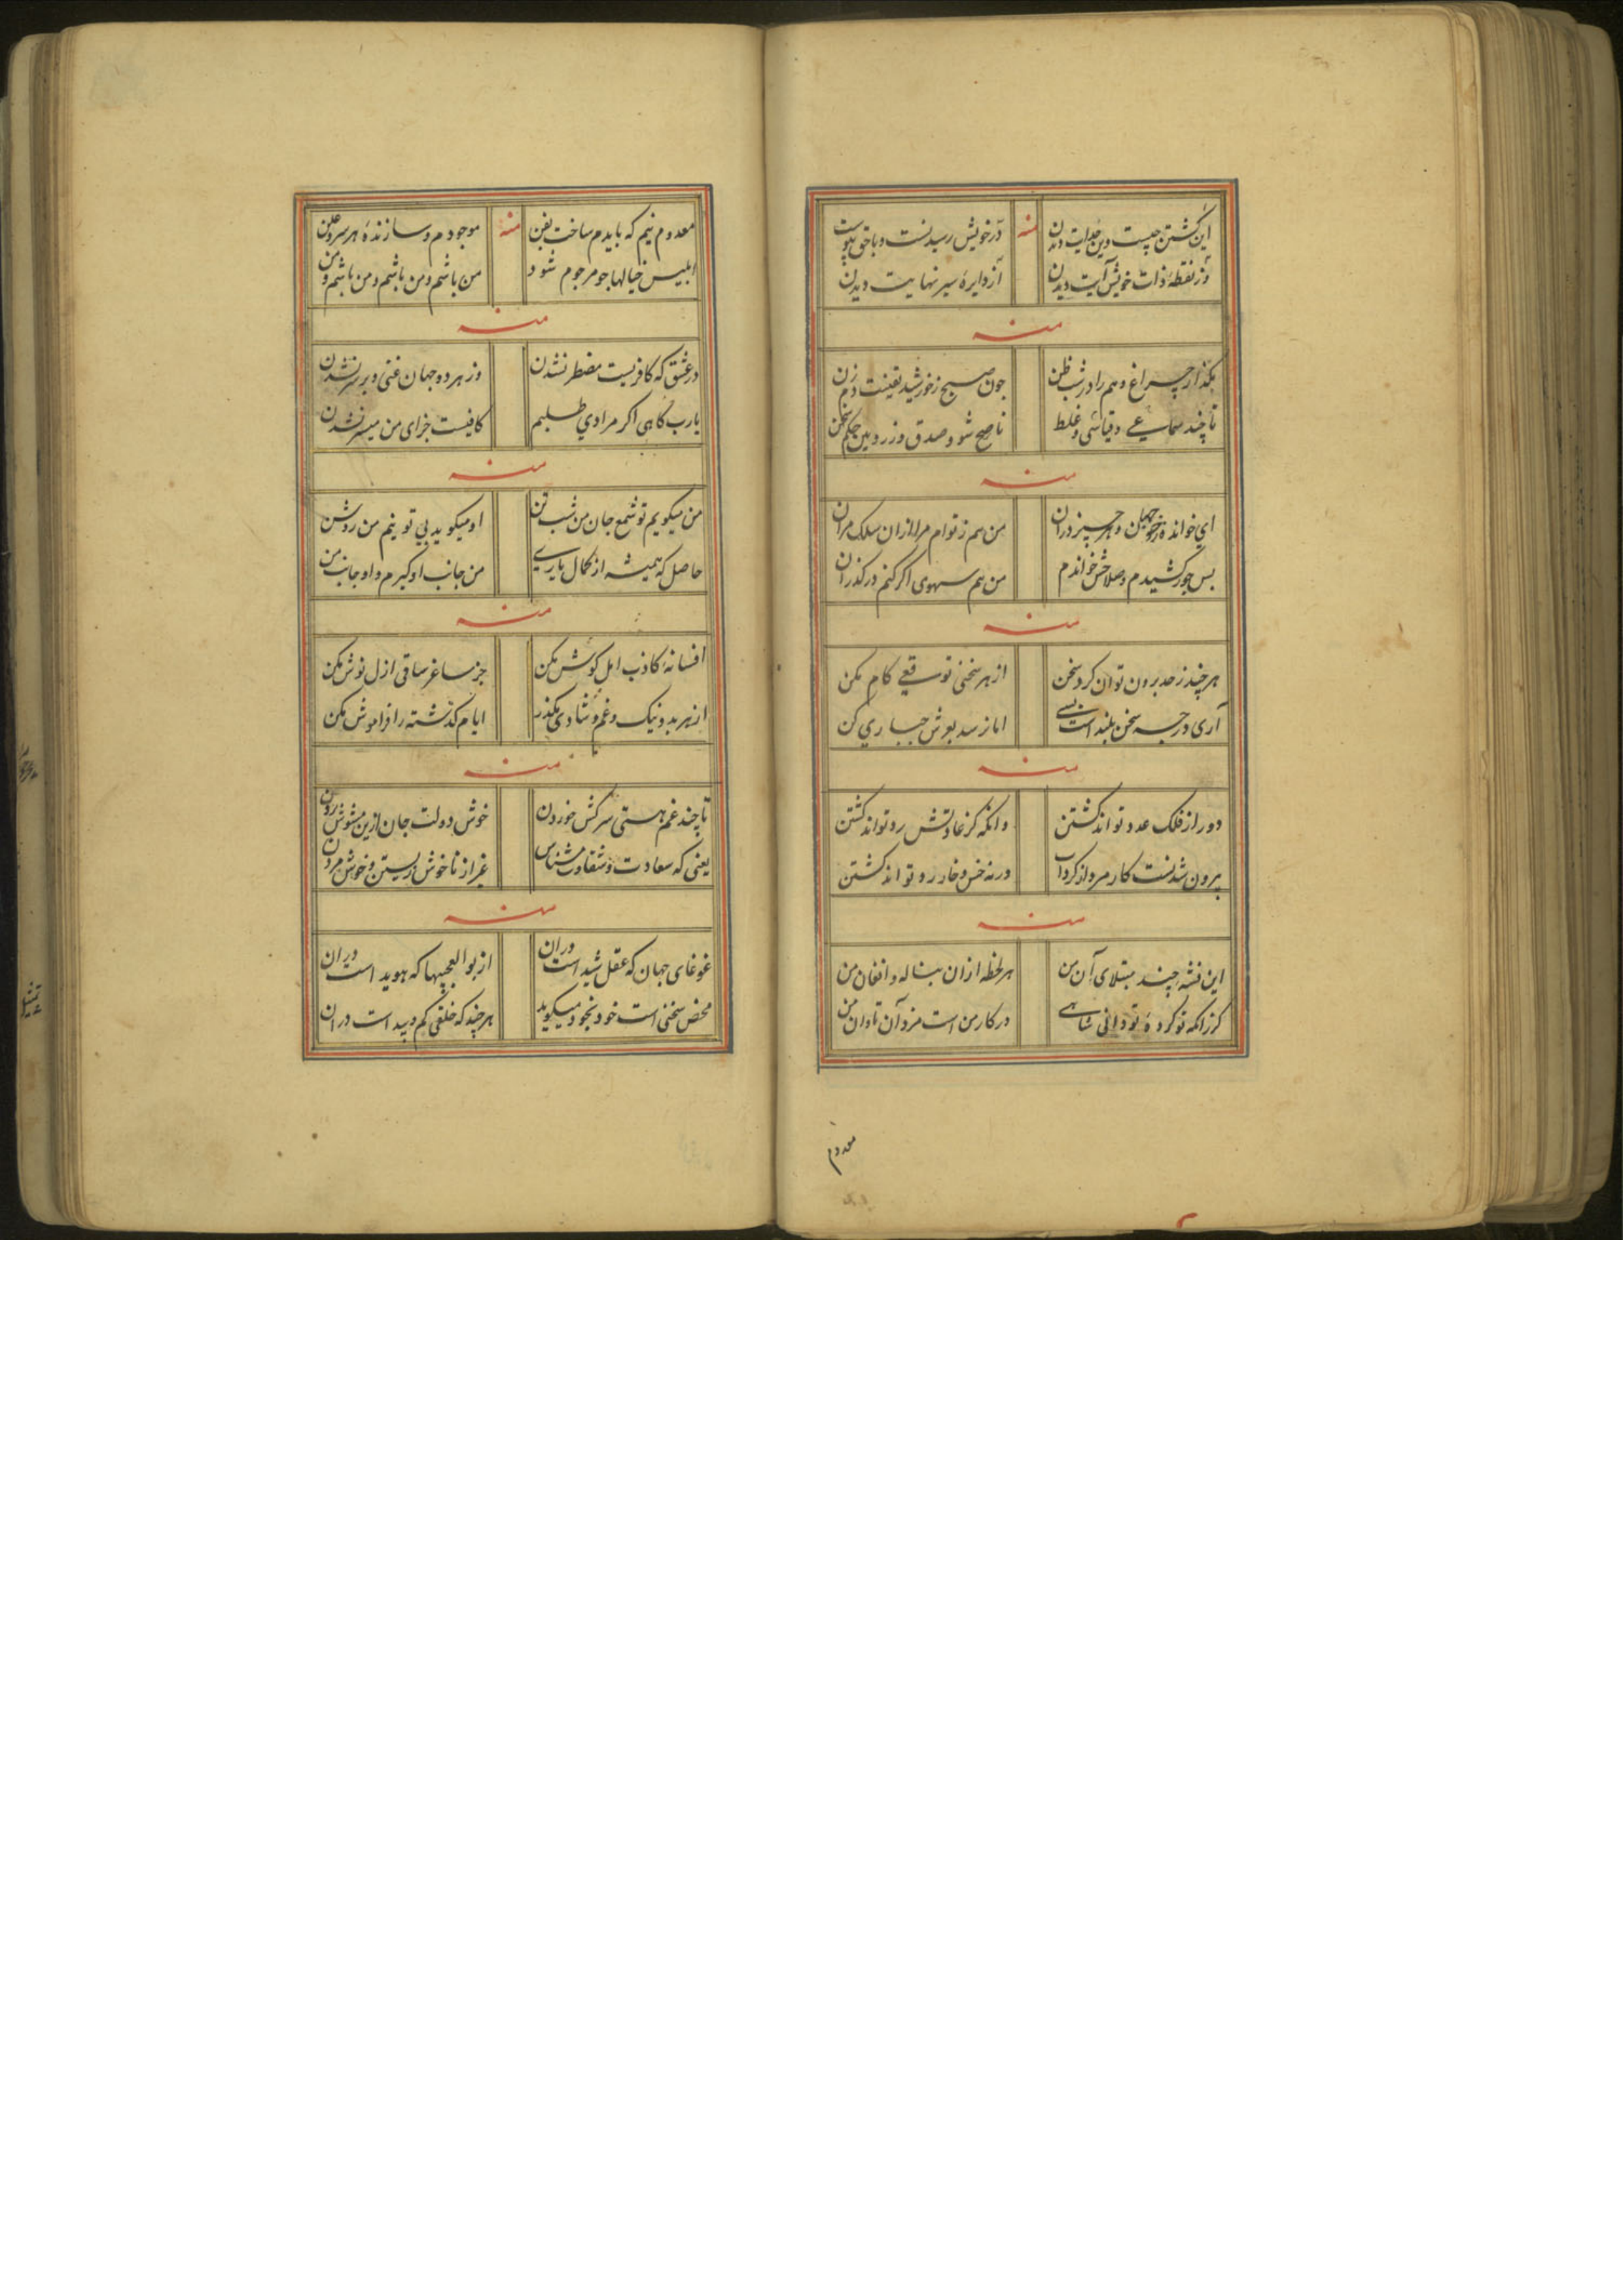 این گشتن چیست وین خدایت دیدن منه در خویش رسیدنست و باحق پیوست
وز نقطهٔ ذات خویش آیت دیدن از دایرهٔ سیر نهایت دیدن
منه
بگذار چراغ وهم را در شب ظن چون صبح ز خورشید یقینت دم زن
تا چند سماعی و قیاسی و غلط ناصح شو و صدق وز رو بین سخن
منه
ای خوانده ز خود جهان و هر چیز در آن من هم ز توام مرا ازان سلک مران
بس جور کشیدم و صلاحش خواندم من هم سهوی اگر کنم در گذران
منه
هر چند ز حد برون توان کرد سخن از هر سخنی توقع کام مکن
آری درجه سخن بلند است بسی اما نرسد بعرش جباری کن
منه
دور از فلک عدو تواند گشتن وانگه کز عادتش رو تواند گشتن
بیرون شدنست کار مرد از گرداب ورنه خس و خار رو تواند گشتن
منه
این فتنه چند مبتلای آن من هر لحظه ازان بناله و افغان من
گر زانکه تو کردهٔ تو دانی شاهی در کار من است مزد آن تاوان من
معدوم
معدوم نیم که بایدم ساخت بفن منه موجودم و سازندهٔ هر سر و علن
ابلیس خیالها چو مرجوم شود من باشم و من باشم و من باشم و من
منه
در عشق که کافریست مضطر نشدن وز هر دو جهان غنی و برسر نشدن
یارب گاهی اگر مرادی طلبم کافیست جزای من میسر نشدن
منه
من میگویم تو شمع جان من شب تن او میگوید بی تو نیم من روشن
حاصل که همیشه از کمال یاری من جانب او گیرم و او جانب من
منه
افسانهٔ کاذب امل گوش مکن جز ساغر ساقی ازل نوش مکن
از هر بد و نیک و غم و شادی بگذر ایام گذشته را فراموش مکن
منه
تا چند غم هستی سرکش خوردن خوش دولت جان ازین مشوش بردن
یعنی که سعادت و شقاوت مشناس غیر از ناخوش زیستن و خوش مردن
منه
غوغای جهان که عقل شیداست در آن از بوالعجبیها که هویداست در آن
محض سخنی است خود بخود میگوید هر چند که خلقی گم و پیداست در آن